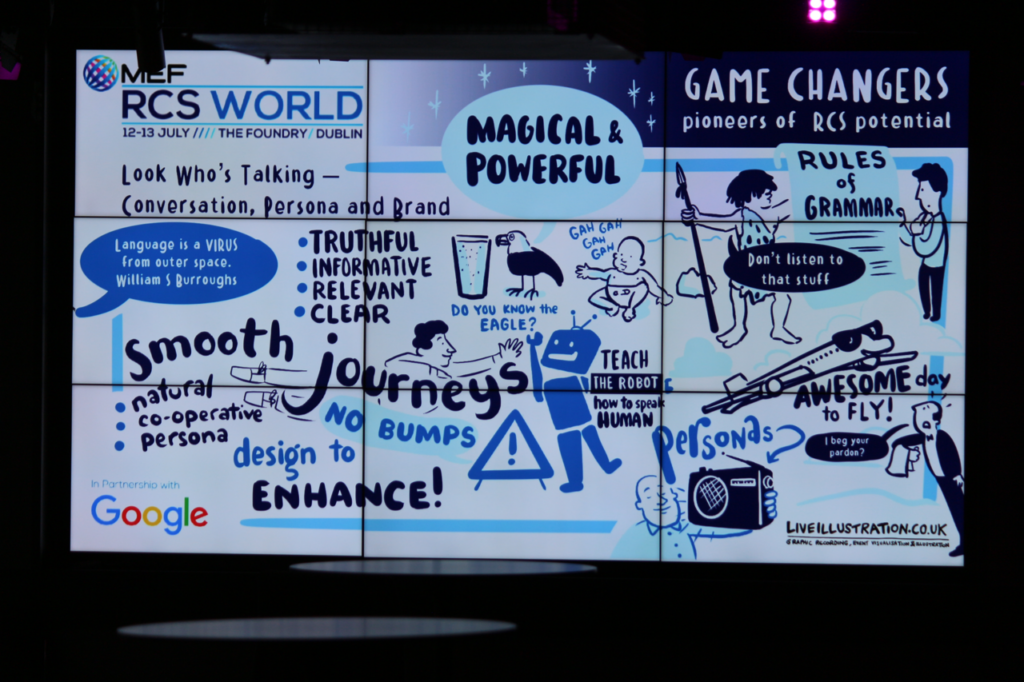 MEF
RCS WORLD
12-13 JULY //// THE FOUNDRY / DUBLIN
Look Who's Talking –
Conversation, Persona and Brand
MAGICAL &
POWERFUL
GAME CHANGERS
pioneers of RCS potential
Language is a VIRUS
from outer space.
William S Burroughs
• TRUTHFUL
• INFORMATIVE
• RELEVANT
• CLEAR
GAH GAH
GAH
GAH
DO YOU KNOW the
EAGLE?
RULES
of
GRAMMAR
Don't listen to
that stuff
smooth
journeys
• natural
• co-operative
• persona
NO BUMPS
design to
ENHANCE!
TEACH
THE ROBOT
how to speak
HUMAN
AWESOME day
to FLY!
personas
I beg your
pardon?
In Partnership with
Google
LIVEILLUSTRATION.CO.UK
GRAPHIC RECORDING, EVENT VISUALISATION & ILLUSTRATION